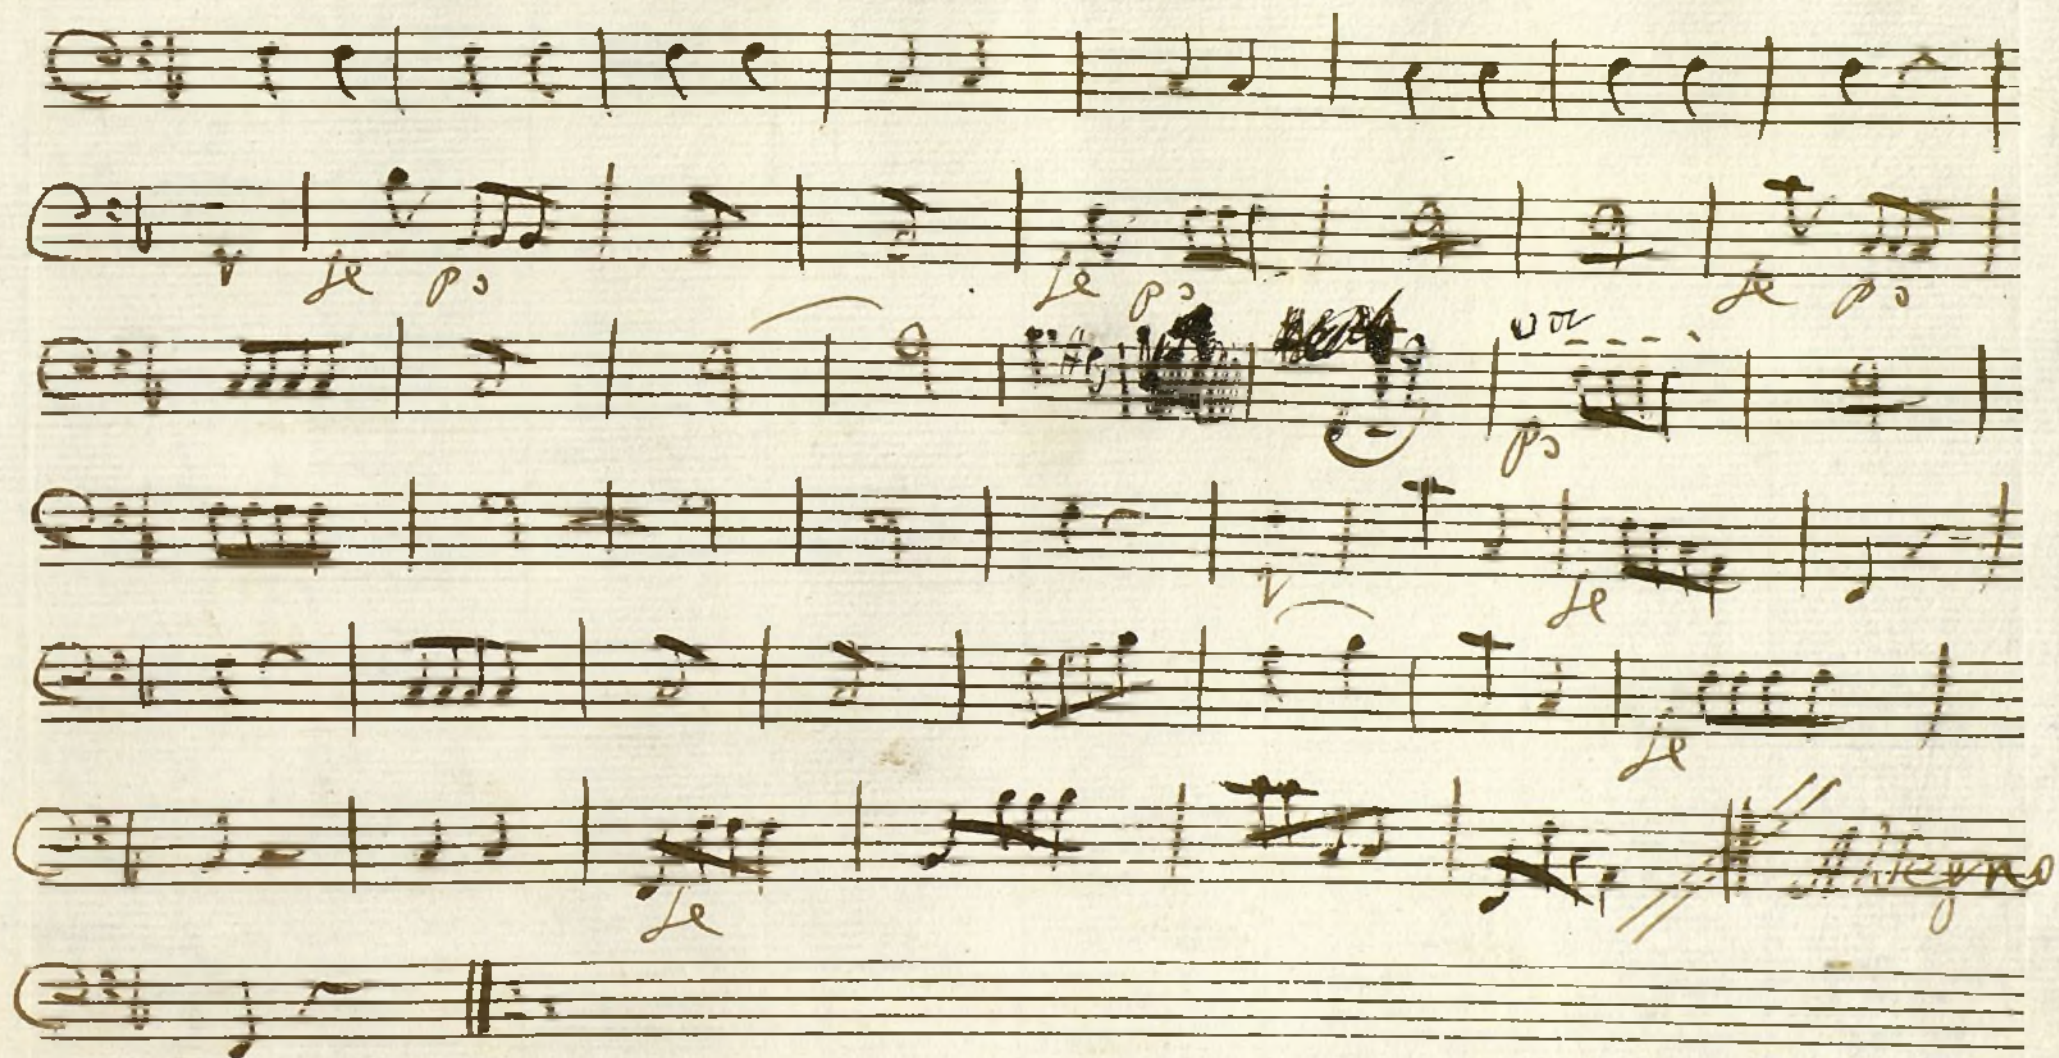 fe po fe po fe po
po
fe
fe
Allegro
fe